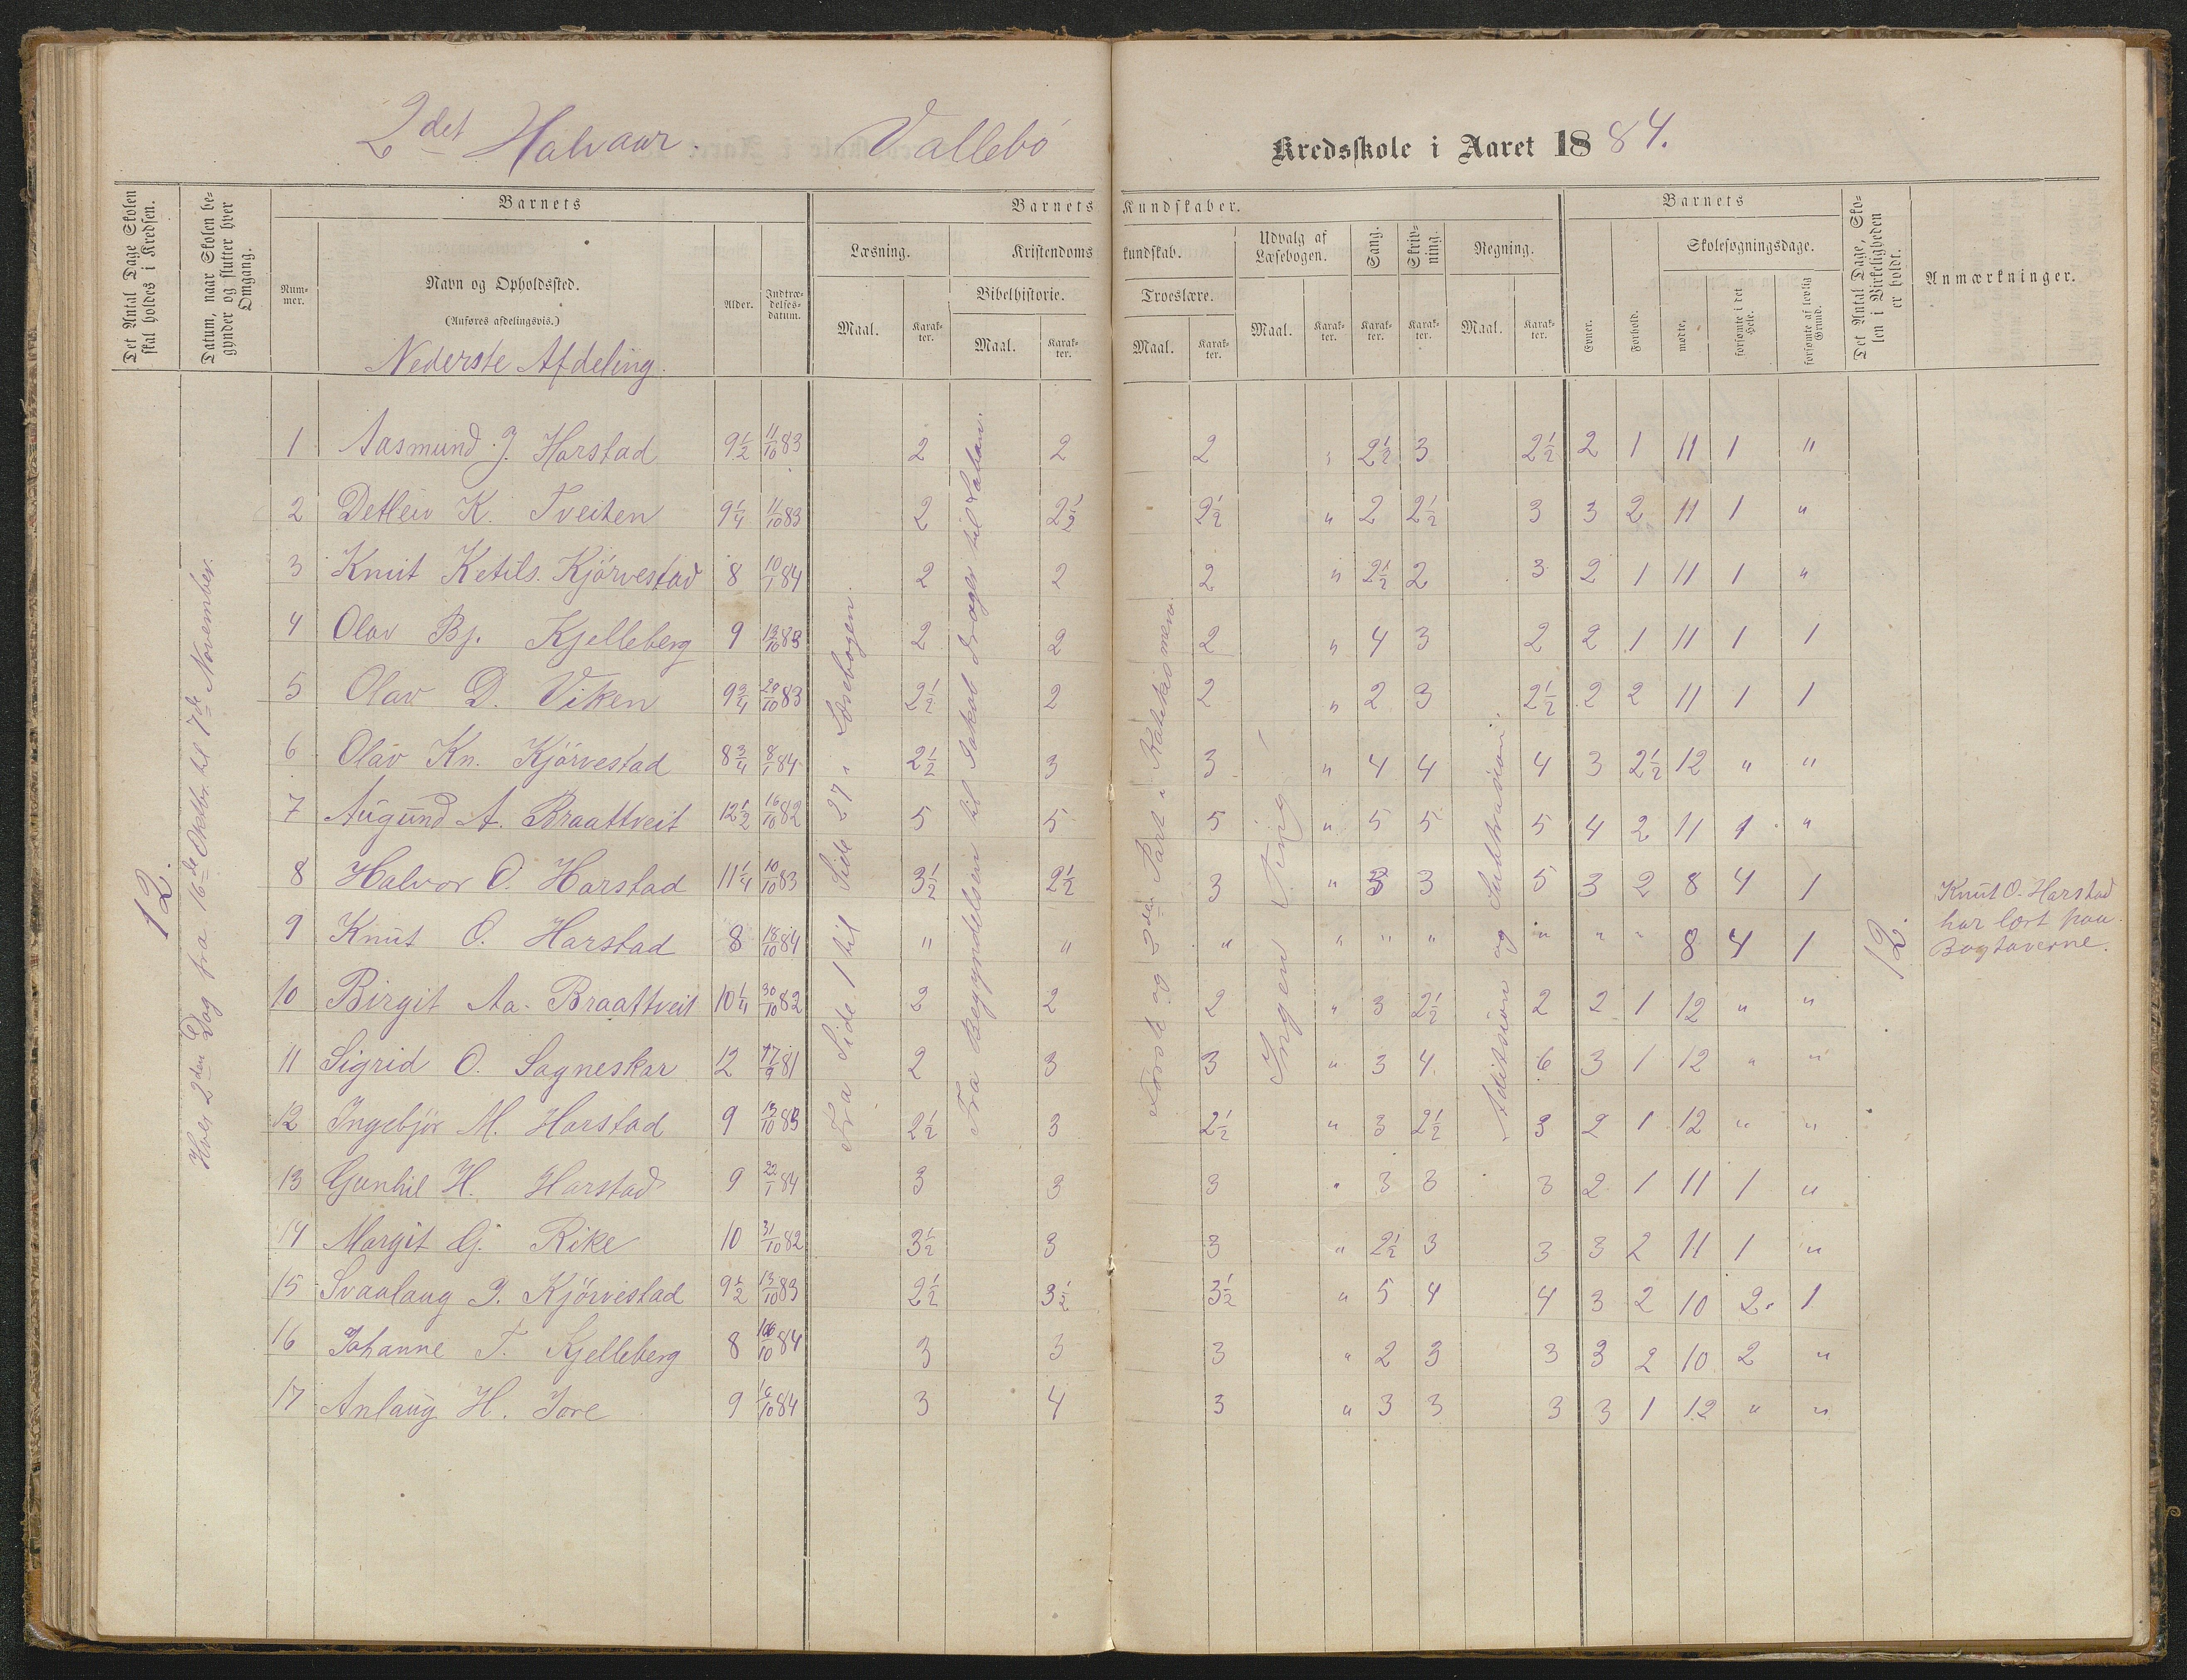 2det Halvaar. Vallebö Kredsskole i Aaret 1884.
Det Antal Dage Skolen skal holdes i Kredsen.
Datum, naar Skolen begynder og slutter hver Omgang.
Barnets
Nummer.
Navn og Opholdssted.
(Anføres afdelingsvis.)
Alder.
Indtrædelsesdatum.
Barnets Kundskaber.
Læsning.
Maal.
Karakter.
Kristendomskundskab.
Bibelhistorie.
Maal.
Karakter.
Troeslære.
Maal.
Karakter.
Udvalg af Læsebogen.
Maal.
Karakter.
Sang.
Karakter.
Skrivning.
Karakter.
Regning.
Maal.
Karakter.
Barnets
Evner.
Forhold.
Skolesøgningsdage.
mødte.
forsømte i det Hele.
forsømte af lovlig Grund.
Det Antal Dage, Skolen i Virkeligheden er holdt.
Anmærkninger.
Nederste Afdeling.
12.
Hver 2den Dag fra 16de Oktbr. til 7de November.
Fra Side 1 til Side 27 i Læsebogen.
Fra Begyndelsen til Jakob drager til Laban.
Første og 3die Part i Katekismen.
Ingen Ting
Additsion og Subtrasion.
12.
1 Aasmund J. Harstad 9 1/2 11/10 83 2 2 2 " 2 1/2 3 2 1/2 2 1 11 1 "
2 Detleiv K. Tveiten 9 1/4 11/10 83 2 2 1/2 2 1/2 " 2 2 1/2 3 3 2 11 1 "
3 Knut Ketils. Kjörvestad 8 10/1 84 2 2 2 " 2 1/2 2 3 2 1 11 1 "
4 Olav Bj. Kjelleberg 9 12/10 83 2 2 2 " 4 3 2 2 1 11 1 1
5 Olav D. Viken 9 3/4 20/10 83 2 1/2 2 2 " 2 3 2 1/2 2 2 11 1 1
6 Olav Kn. Kjörvestad 8 3/4 8/1 84 2 1/2 3 3 " 4 4 4 3 2 1/2 12 " "
7 Augund A. Braattveit 12 1/2 16/10 82 5 5 5 " 5 5 5 4 2 11 1 "
8 Halvor O. Harstad 11 1/4 10/10 83 3 1/2 2 1/2 3 " 3 3 5 3 2 8 4 1
9 Knut O. Harstad 8 18/10 84 " " " " " " " " " 8 4 1
Knut O. Harstad
har lært paa
Bogtaverne.
10 Birgit Aa. Braattveit 10 1/4 30/10 82 2 2 2 " 3 2 1/2 2 2 1 12 " "
11 Sigrid O. Sagneskar 12 17/9 81 2 3 3 " 3 4 6 3 1 12 " "
12 Ingebjör M. Harstad 9 13/10 83 2 1/2 3 2 1/2 " 3 2 1/2 3 2 1 12 " "
13 Gunhil H. Harstad 9 22/1 84 3 3 3 " 3 3 3 2 1 11 1 "
14 Margit G. Rike 10 31/10 82 3 1/2 3 3 " 2 1/2 3 3 3 2 11 1 "
15 Svaalaug J. Kjörvestad 9 1/2 13/10 83 2 1/2 3 1/2 3 1/2 " 5 4 4 3 2 10 2 1
16 Johanne T. Kjelleberg 8 /10 84 3 3 3 " 2 3 3 3 2 10 2 "
17 Anlaug H. Jore 9 16/10 84 3 4 3 " 3 3 3 3 1 12 " "